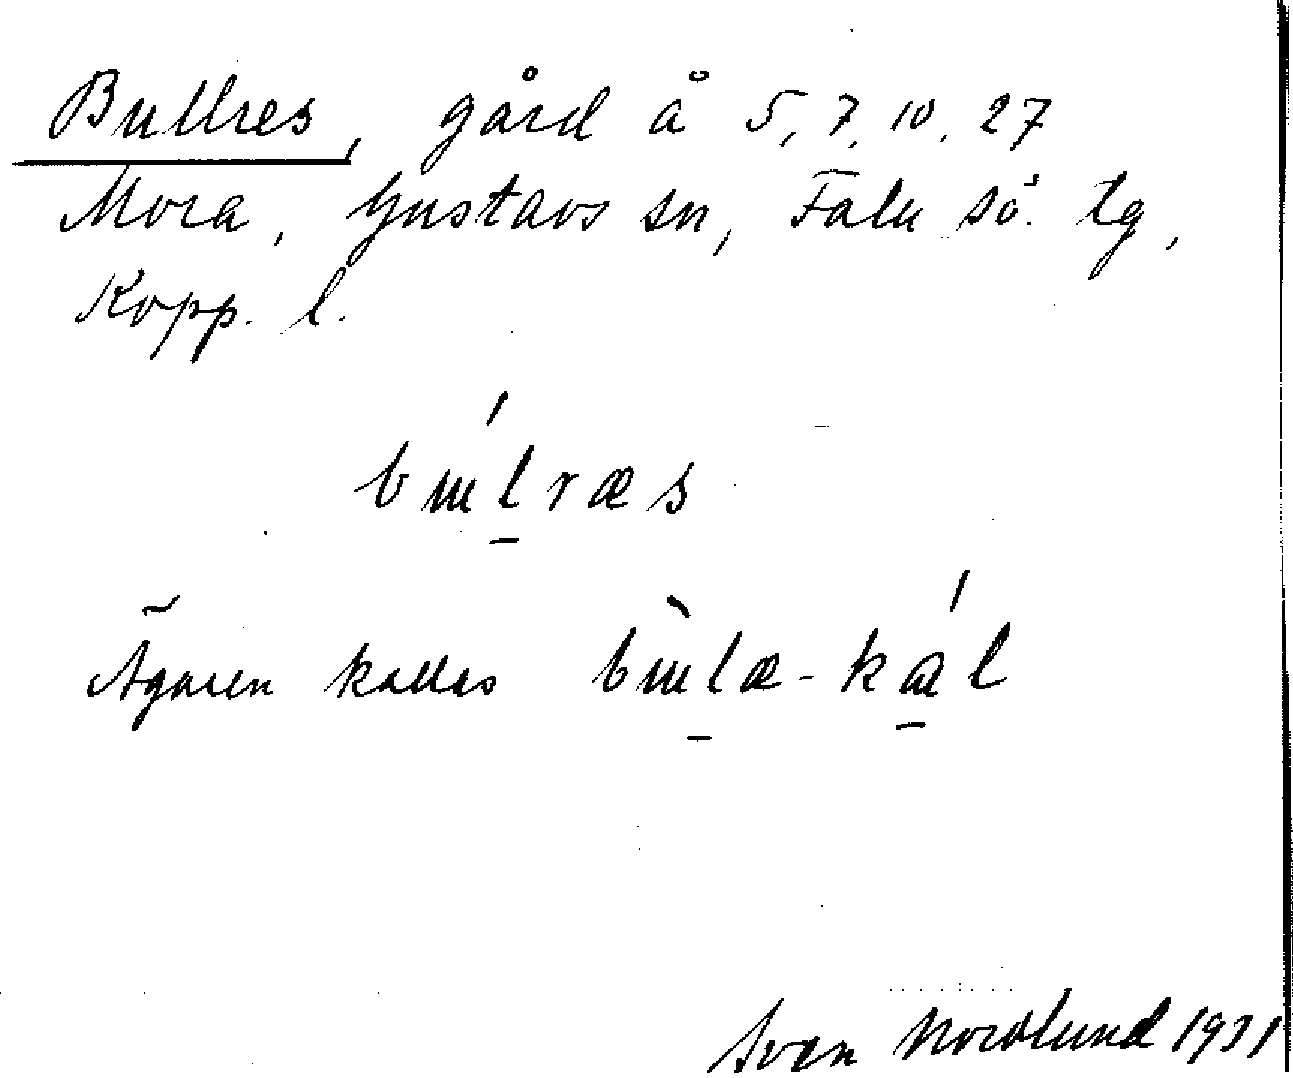 Bullres, gård å 5, 7, 10, 27
Mora, Gustavs sn, Falu sö. tg,
Kopp. l.
bɯ́l̠ræs
Ägaren kallas bɯ̀l̠æ-ká̠l
Sven Nordlund 1931